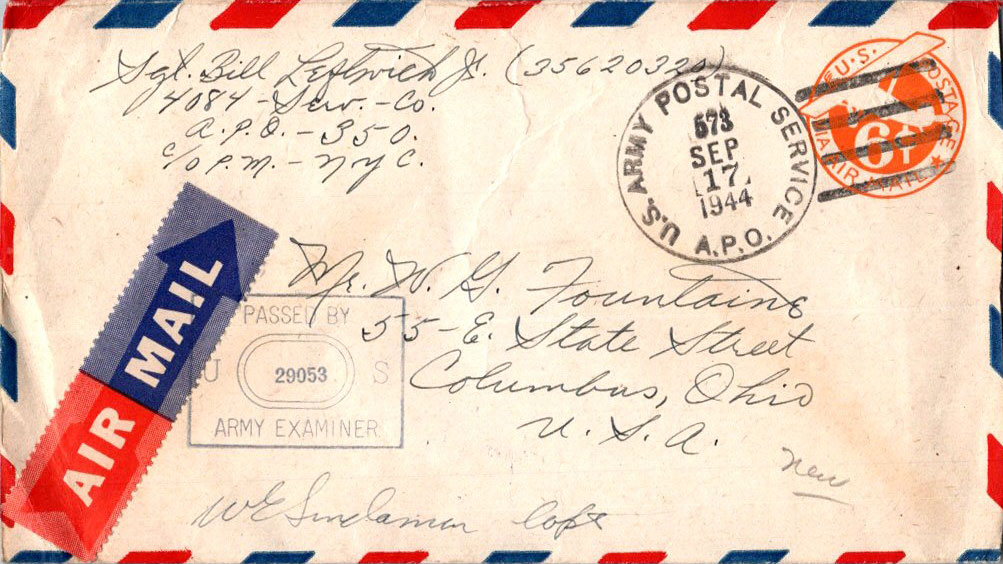 Sgt. Bill Leftwich Jr. (35620320)
4084 - Serv. - Co.
A.P.O. - 350.
c/o P.M. - N Y C.
U.S. ARMY POSTAL SERVICE
A.P.O.
573
SEP
17
1944
U.S. POSTAGE
6¢
VIA AIR MAIL
AIR MAIL
Mr. W. G. Fountaine
55 - E. State Street
Columbus, Ohio
U. S. A.
PASSED BY
U 29053 S
ARMY EXAMINER
new
W E Capt